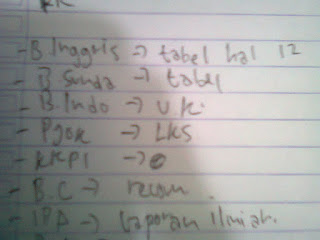 - B. Inggris → tabel hal 12
- B Sunda → tabel
- B. Indo → U K.
- PJOK → LKS
- KKPI →
- B.C → recom.
- IPA → Laporan Ilmiah.